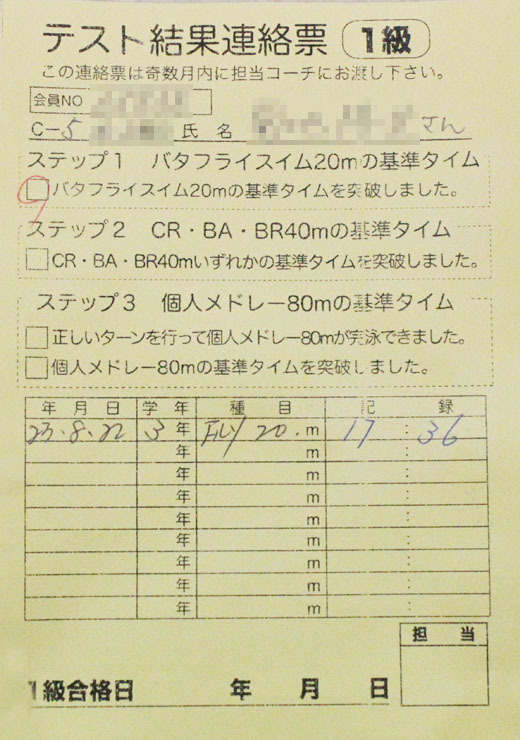 テスト結果連絡票 1級
この連絡票は奇数月内に担当コーチにお渡し下さい。
会員NO
C-5 氏名 さん
ステップ1 バタフライスイム20mの基準タイム
バタフライスイム20mの基準タイムを突破しました。
ステップ2 CR・BA・BR40mの基準タイム
CR・BA・BR40mいずれかの基準タイムを突破しました。
ステップ3 個人メドレー80mの基準タイム
正しいターンを行って個人メドレー80mが完泳できました。
個人メドレー80mの基準タイムを突破しました。
年月日 学年 種目 記録
23・8・22 3年 Fly 20.m 17:36
年 m :
年 m :
年 m :
年 m :
年 m :
年 m :
年 m :
年 m :
担当
1級合格日 年 月 日